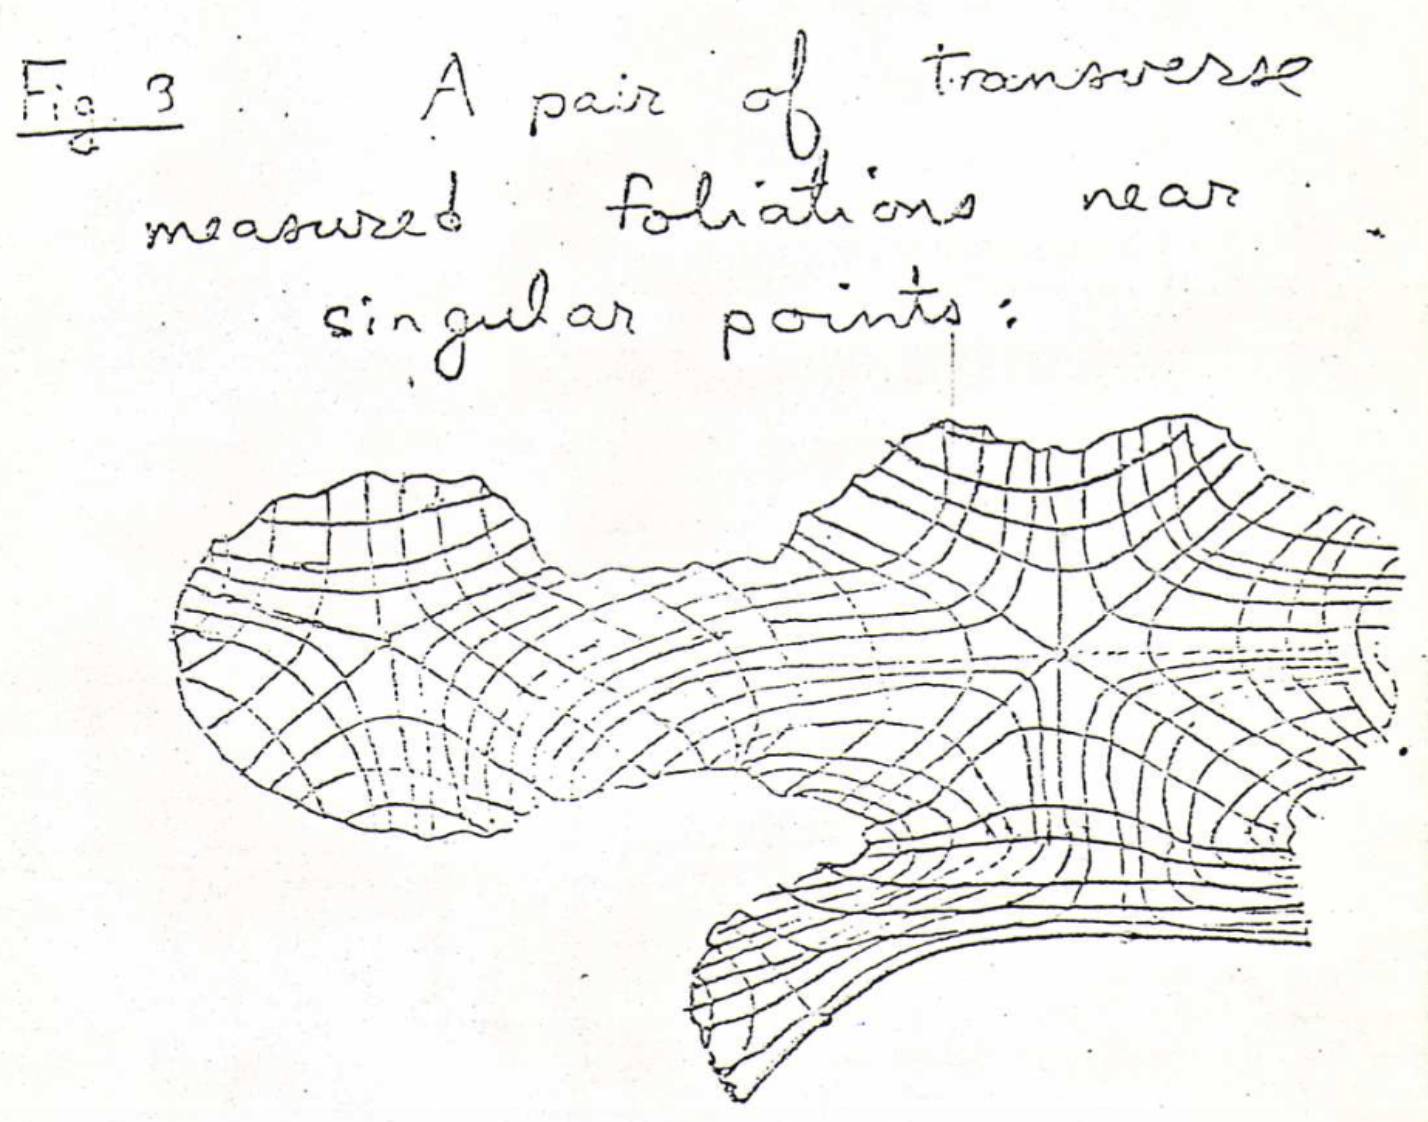 Fig 3 A pair of transverse
measured foliations near
singular points: